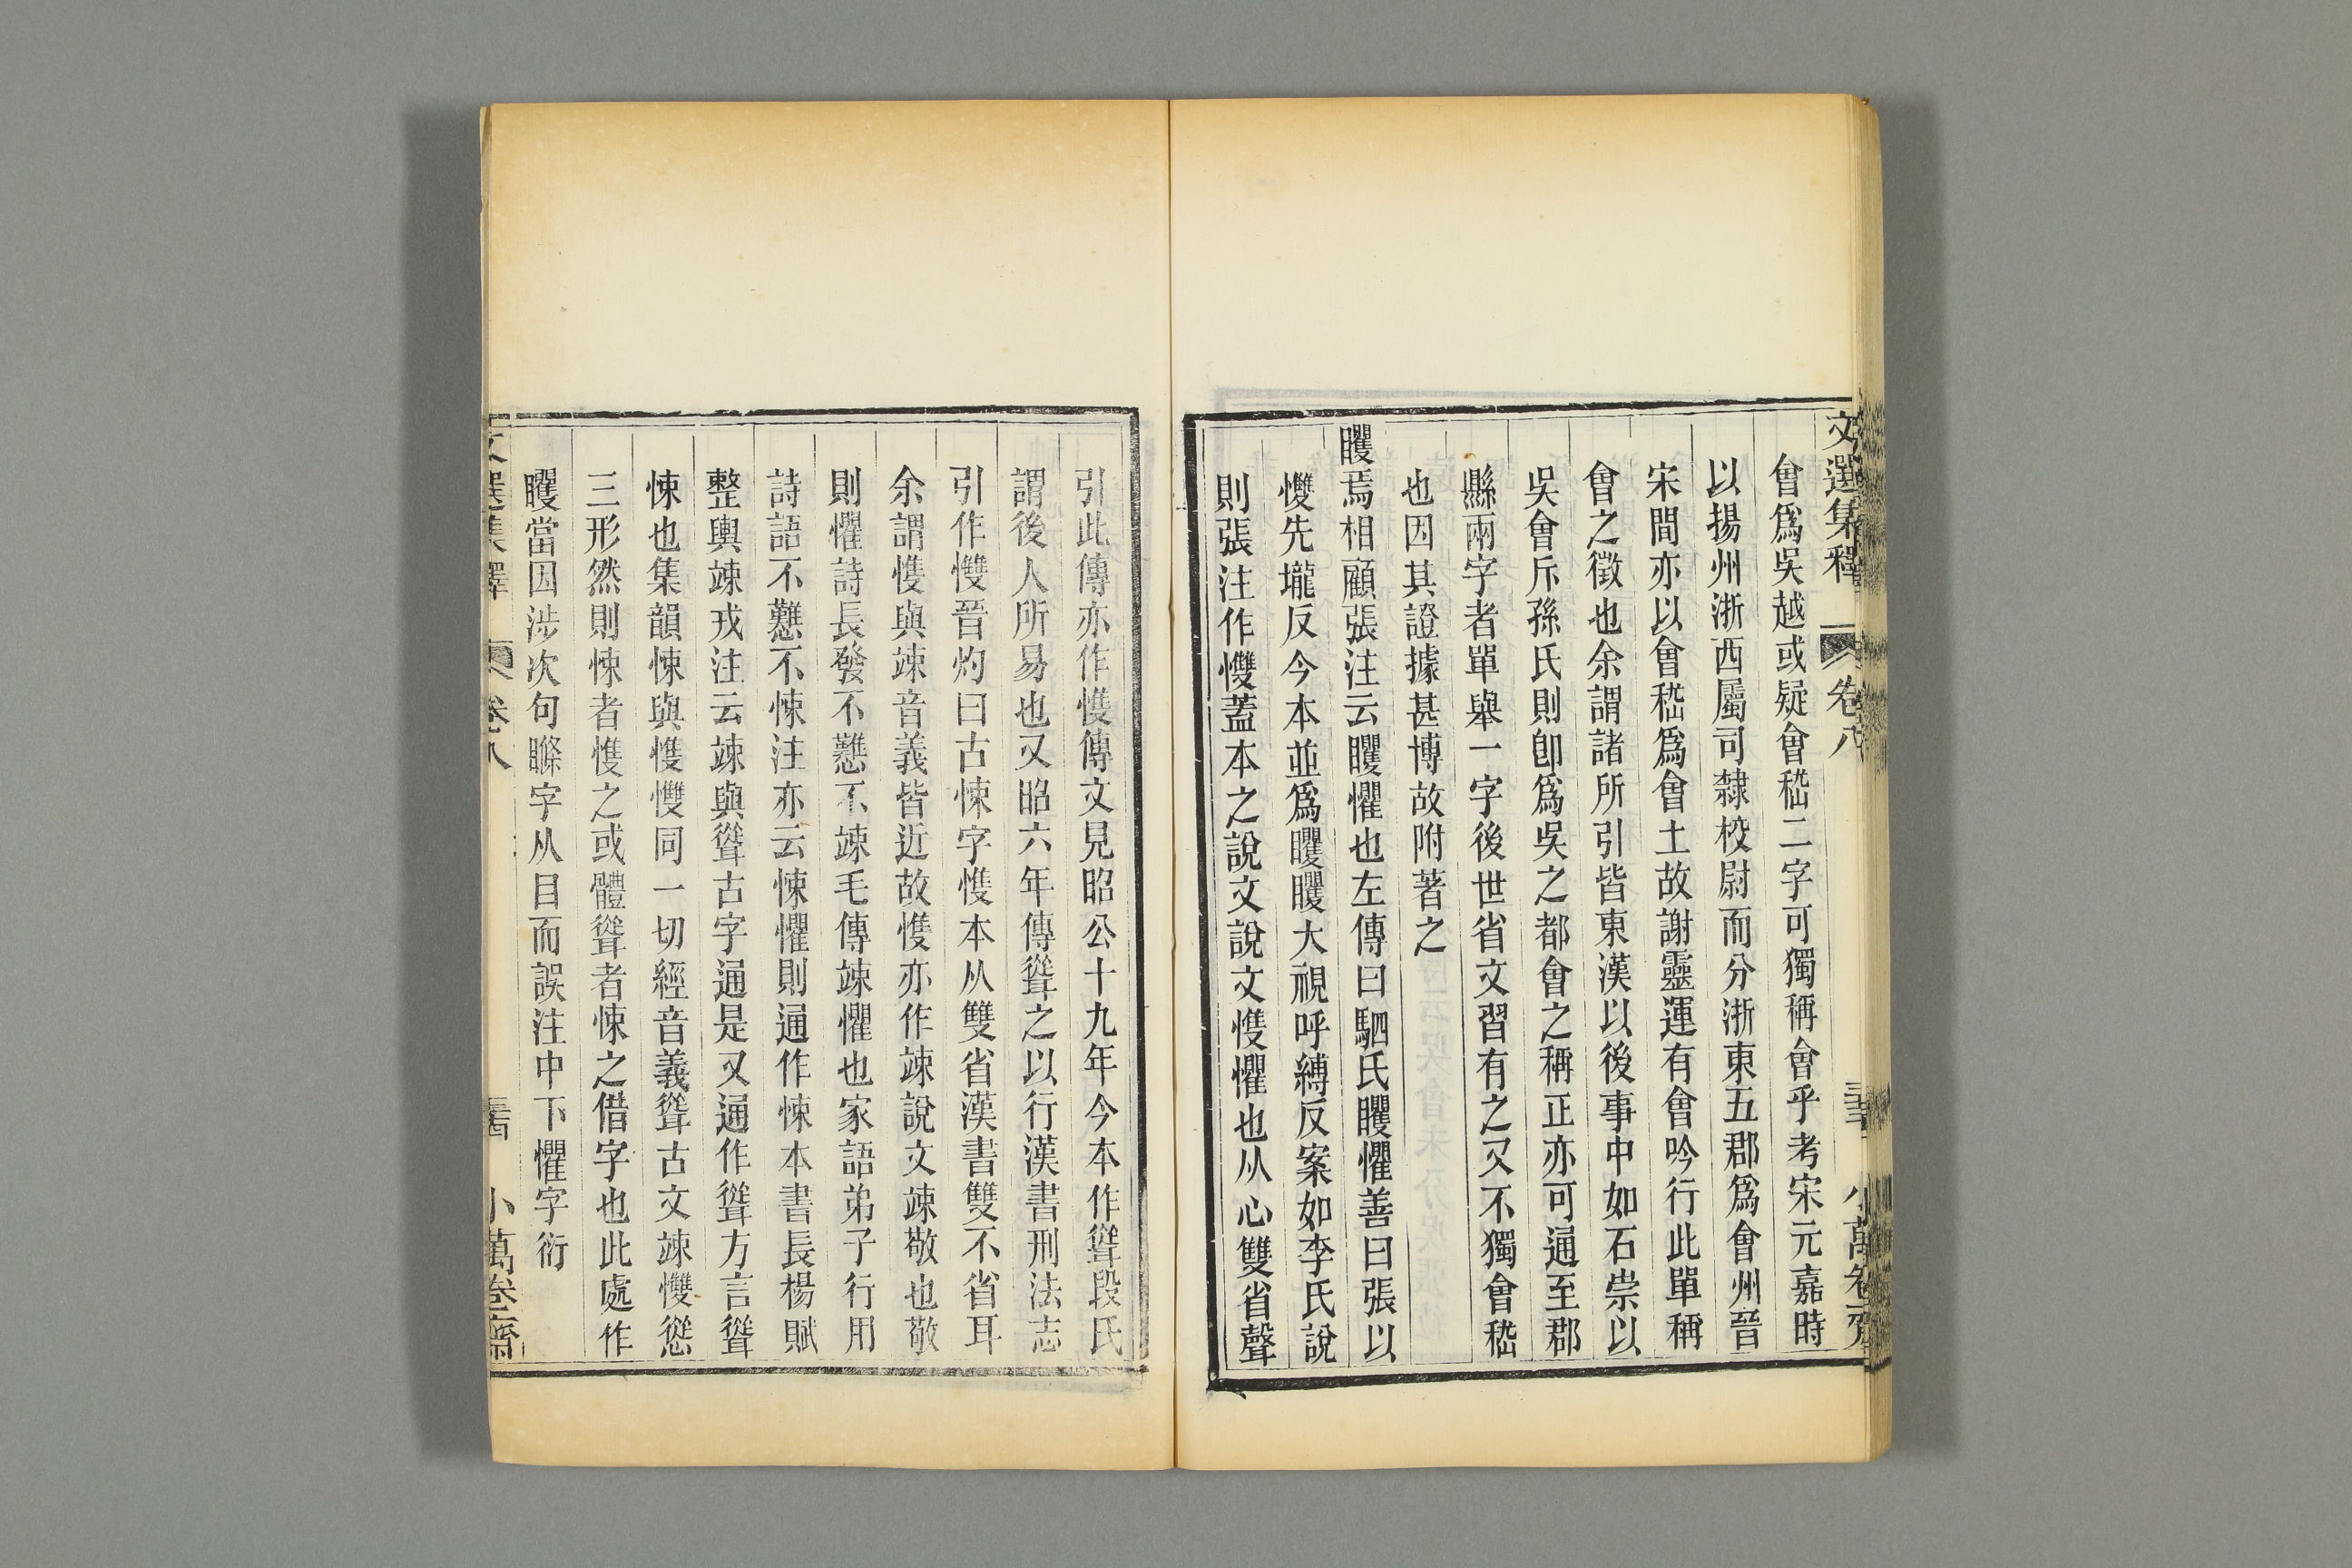 文選集釋 卷八 小萬卷齋
會爲吳越或疑會嵇二字可獨稱會乎考宋元嘉時
以揚州浙西屬司隸校尉而分浙東五郡爲會州晉
宋間亦以會嵇爲會土故謝靈運有會吟行此單稱
會之徵也余謂諸所引皆東漢以後事中如石崇以
吳會斥孫氏則卽爲吳之都會之稱正亦可通至郡
縣兩字者單舉一字後世省文習有之又不獨會嵇
也因其證據甚博故附著之
矍焉相顧張注云矍懼也左傳曰駟氏矍懼善曰張以
㦼先壠反今本並爲矍矍大視呼縛反案如李氏說
則張注作㦼蓋本之說文說文愯懼也从心雙省聲
引此傳亦作愯傳文見昭公十九年今本作聳段氏
謂後人所易也又昭六年傳聳之以行漢書刑法志
引作㦼晉灼曰古悚字愯本从雙省漢書雙不省耳
余謂愯與竦音義皆近故愯亦作竦說文竦敬也敬
則懼詩長發不戁不竦毛傳竦懼也家語弟子行用
詩語不戁不悚注亦云悚懼則通作悚本書長楊賦
整輿竦戎注云竦與聳古字通是又通作聳方言聳
悚也集韻悚與愯㦼同一切經音義聳古文竦㦼慫
三形然則悚者愯之或體聳者悚之借字也此處作
矍當因涉次句瞭字从目而誤注中下懼字衍
文選集釋 卷八 小萬卷齋